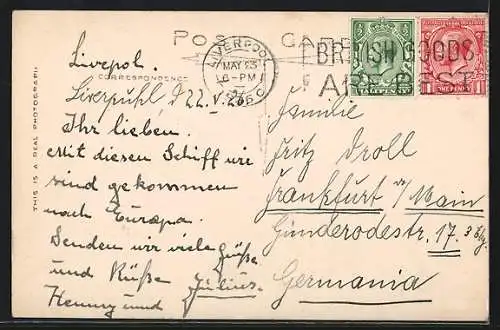 POST CARD
CORRESPONDENCE
THIS IS A REAL PHOTOGRAPH
LIVERPOOL
MAY 23
6-PM
1926
BRITISH GOODS
ARE BEST
HALFPENNY
ONE PENNY
Liverpol.
Liverpuhl, d 22. V. 26
Ihr lieben.
Mit diesen Schiff wir
sind gekommen
nach Europa.
Senden wir viele Grüße
und Küße Julius.
Henny und
Familie
Fritz Droll
Frankfurt a/Main
Günderodestr. 17. 3 Stg.
Germania